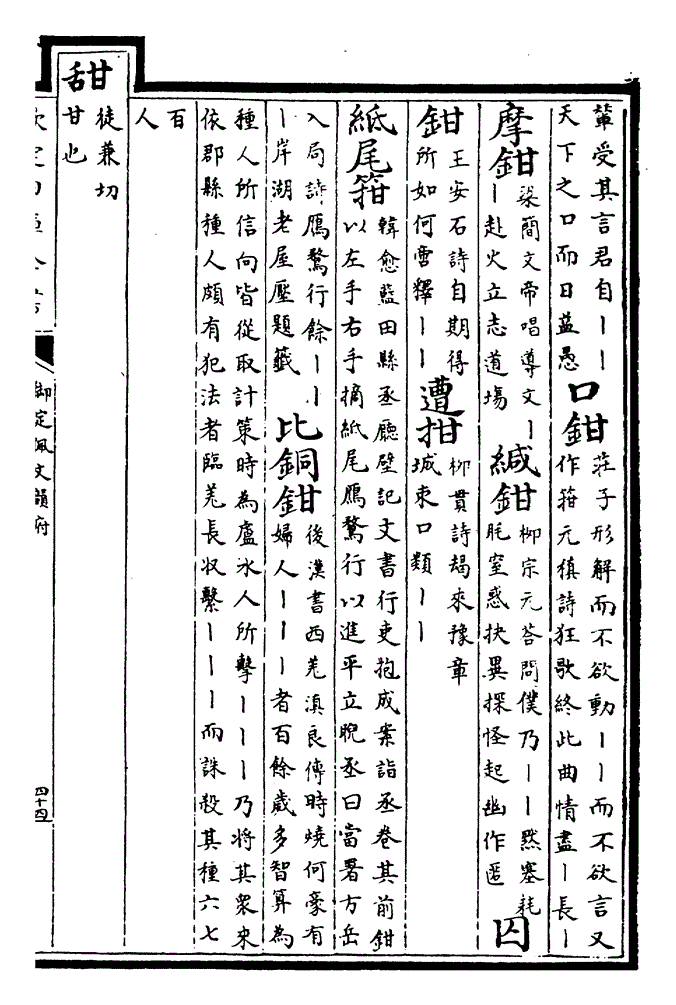 輩受其言君自丨丨
天下之口而曰益愚
口鉗
莊子形解而不欲動丨丨而不欲言又
作箝元稹詩狂歌終此曲情盡丨長丨
摩鉗
梁簡文帝唱導文丨
丨赴火立志道場
緘鉗
柳宗元答問僕乃丨丨黙塞耗
眊窒惑抉異探怪起幽作匿
囚
鉗
王安石詩自期得
所如何雪釋丨丨
遭拑
柳貫詩朅來豫章
城東口類丨丨
紙尾箝
韓愈藍田縣丞廳壁記文書行吏抱成案詣丞卷其前鉗
以左手右手摘紙尾鴈鶩行以進平立睨丞曰當署方岳
入局詩鴈鶩行餘丨丨
丨岸湖老屋壓題籤
比銅鉗
後漢書西羌滇良傳時燒何豪有
婦人丨丨丨者百餘歲多智算為
種人所信向皆從取計策時為盧水人所擊丨丨丨乃將其衆來
依郡縣種人頗有犯法者臨羌長收繫丨丨丨而誅殺其種六七
百
人
甜
徒兼切
甘也
欽定四庫全書
御定佩文韻府
四十四